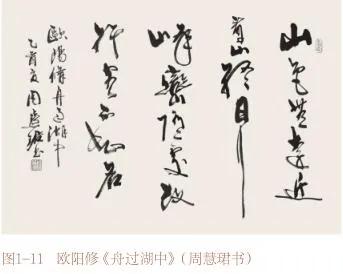 山色无远近
看山终日行
峰峦随处改
行客不知名
欧阳修舟过湖中
乙酉夏周慧珺书
图1-11 欧阳修《舟过湖中》(周慧珺书)